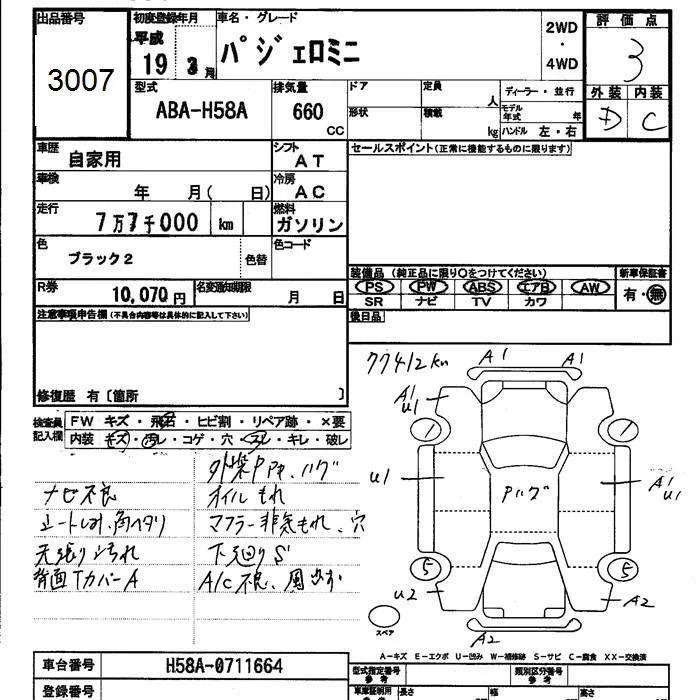 出品番号
3007
初度登録年月
平成
19 3月
車名・グレード
パジェロミニ
2WD
・
4WD
評価点
3
外装 内装
D C
型式
ABA-H58A
排気量
660
CC
ドア
形状
定員
人
積載
kg
ディーラー・並行
モデル年式 年
ハンドル 左・右
車歴
自家用
シフト
AT
車検
年 月( 日)
冷房
AC
走行
7万7千000 km
燃料
ガソリン
色
ブラック2
色替
色コード
R券
10,070円
名変通知期限
月 日
セールスポイント(正常に機能するものに限ります)
装備品(純正品に限り○をつけてください)
PS PW ABS エアB AW
SR ナビ TV カワ
新車保証書
有・無
後日品
注意事項申告欄(不具合内容等は具体的に記入して下さい)
修復歴 有〔箇所 〕
検査員
記入欄
FW キズ・飛石・ヒビ割・リペア跡・×要
内装 キズ・汚レ・コゲ・穴・スレ・キレ・破レ
ナビ不良
シートしみ、角ヘタリ
天張り汚れ
背面TカバーA
外装P、ハゲ
オイルもれ
マフラー排気もれ、穴
下廻りS
A/C不良、風出ず
77412km
A1 A1
A1
U1
U1
Pハゲ
A1
U1
5 5
U2
A2
A2
スペア
A−キズ E−エクボ U−凹み W−補修跡 S−サビ C−腐食 XX−交換済
車台番号
H58A-0711664
登録番号
型式指定番号
参考
類別区分番号
参考
車庫証明用
長さ
幅
高さ